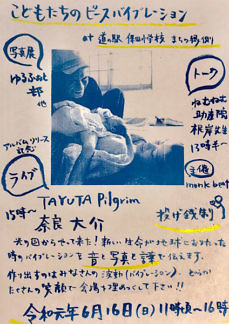 こどもたちのピースバイブレーション
at 道の駅 保田小学校 まちの縁側
写真展
ゆるふぉと
部
他
トーク
ねむねむ
助産院
根岸先生
13時半〜
アルバムリリース
記念
ライブ
主催
monk beat
TAYUTA Pilgrim
15時〜
奈良 大介
投げ銭制
光の国からやって来た! 新しい生命が地球におりたった
時のバイブレーションを 音と写真と話で伝えます。
作り出すのはみなさんの波動(バイブレーション)。どうか
たくさんの笑顔で会場をうめつくして下さい!!
令和元年6月16日(日) 11時頃〜16時